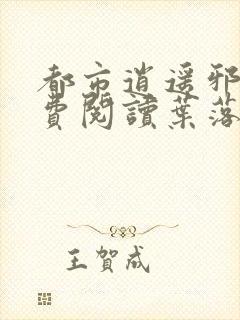 都市逍遥邪
費閱讀葉落
王賀成